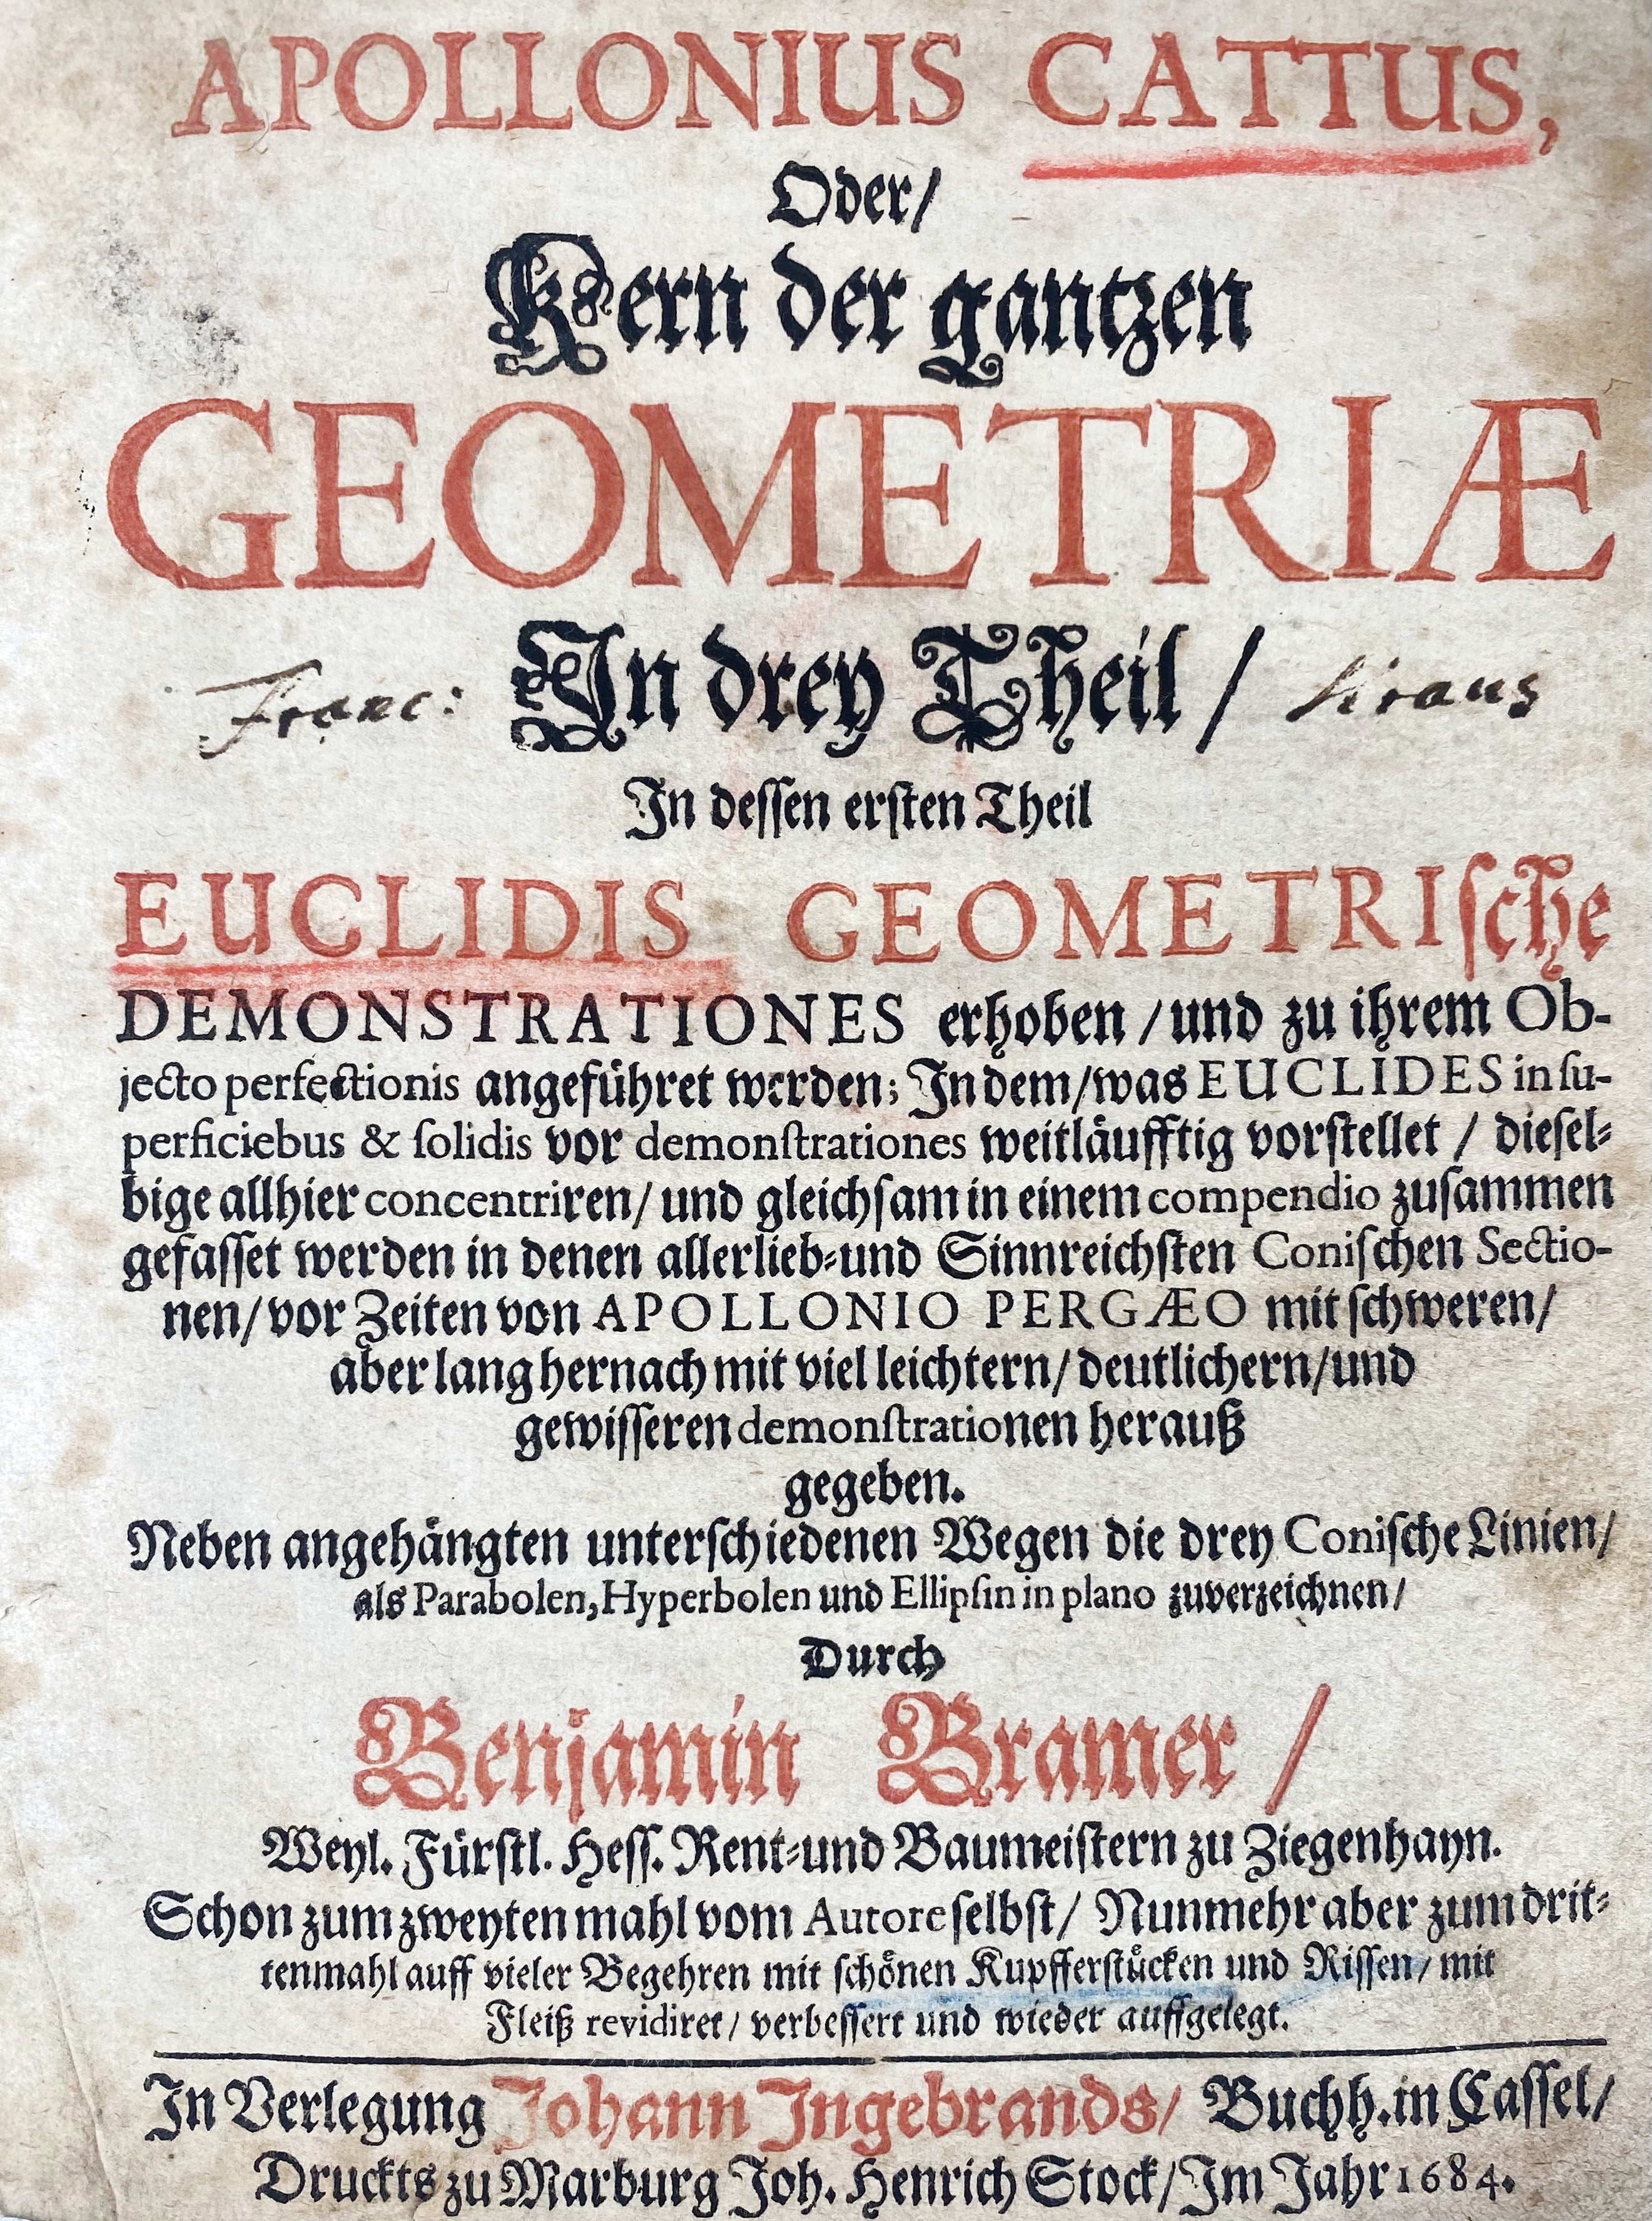 APOLLONIUS CATTUS,
Oder/
Kern der gantzen
GEOMETRIÆ
Franc: In drey Theil / Kraus
In dessen ersten Theil
EUCLIDIS GEOMETRIſche
DEMONSTRATIONES erhoben / und zu ihrem Ob-
jecto perfectionis angeführet werden; In dem/was EUCLIDES in ſu-
perficiebus & ſolidis vor demonſtrationes weitläufftig vorſtellet / dieſel-
bige allhier concentriren/ und gleichſam in einem compendio zuſammen
gefaſſet werden in denen allerlieb-und Sinnreichſten Coniſchen Sectio-
nen/ vor Zeiten von APOLLONIO PERGÆO mit ſchweren/
aber lang hernach mit viel leichtern/ deutlichern/und
gewiſſeren demonſtrationen herauß
gegeben.
Neben angehängten unterſchiedenen Wegen die drey Coniſche Linien/
als Parabolen, Hyperbolen und Ellipſin in plano zuverzeichnen/
Durch
Benjamin Bramer /
Weyl. Fürſtl. Heſſ. Rent-und Baumeiſtern zu Ziegenhayn.
Schon zum zweyten mahl vom Autore ſelbſt/ Nunmehr aber zum drit-
tenmahl auff vieler Begehren mit ſchönen Kupfferſtücken und Riſſen/ mit
Fleiß revidiret/ verbeſſert und wieder auffgelegt.
In Verlegung Johann Ingebrands/ Buchh. in Caſſel/
Druckts zu Marburg Joh. Henrich Stock/Im Jahr 1684.